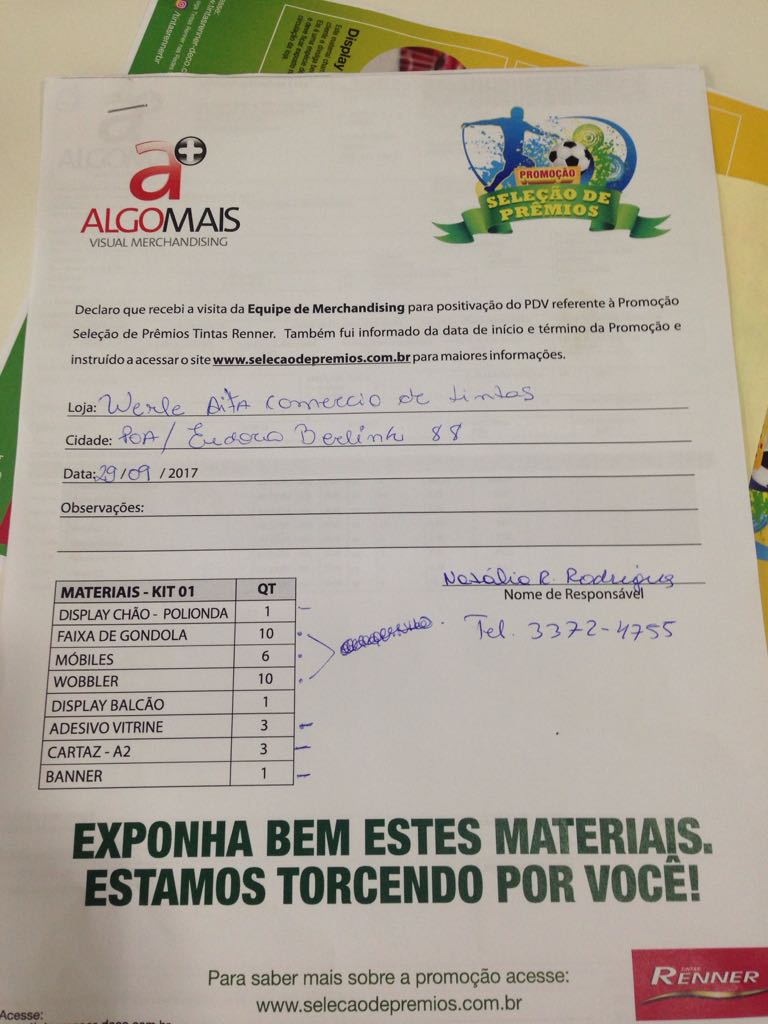 Display
ALGOMAIS
VISUAL MERCHANDISING
PROMOÇÃO
SELEÇÃO DE
PRÊMIOS
Declaro que recebi a visita da Equipe de Merchandising para positivação do PDV referente à Promoção
Seleção de Prêmios Tintas Renner. Também fui informado da data de início e término da Promoção e
instruído a acessar o site www.selecaodepremios.com.br para maiores informações.
Loja: Werle Aita comercio de tintas
Cidade: POA/ Eudoro Berlink 88
Data: 29/09/2017
Observações:
Natálio R. Rodrigues
Nome de Responsável
Tel. 3372-4755
MATERIAIS - KIT 01 QT
DISPLAY CHÃO - POLIONDA 1
FAIXA DE GONDOLA 10
MÓBILES 6
WOBBLER 10
DISPLAY BALCÃO 1
ADESIVO VITRINE 3
CARTAZ - A2 3
BANNER 1
EXPONHA BEM ESTES MATERIAIS.
ESTAMOS TORCENDO POR VOCÊ!
Para saber mais sobre a promoção acesse:
www.selecaodepremios.com.br
TINTAS
RENNER
Acesse: